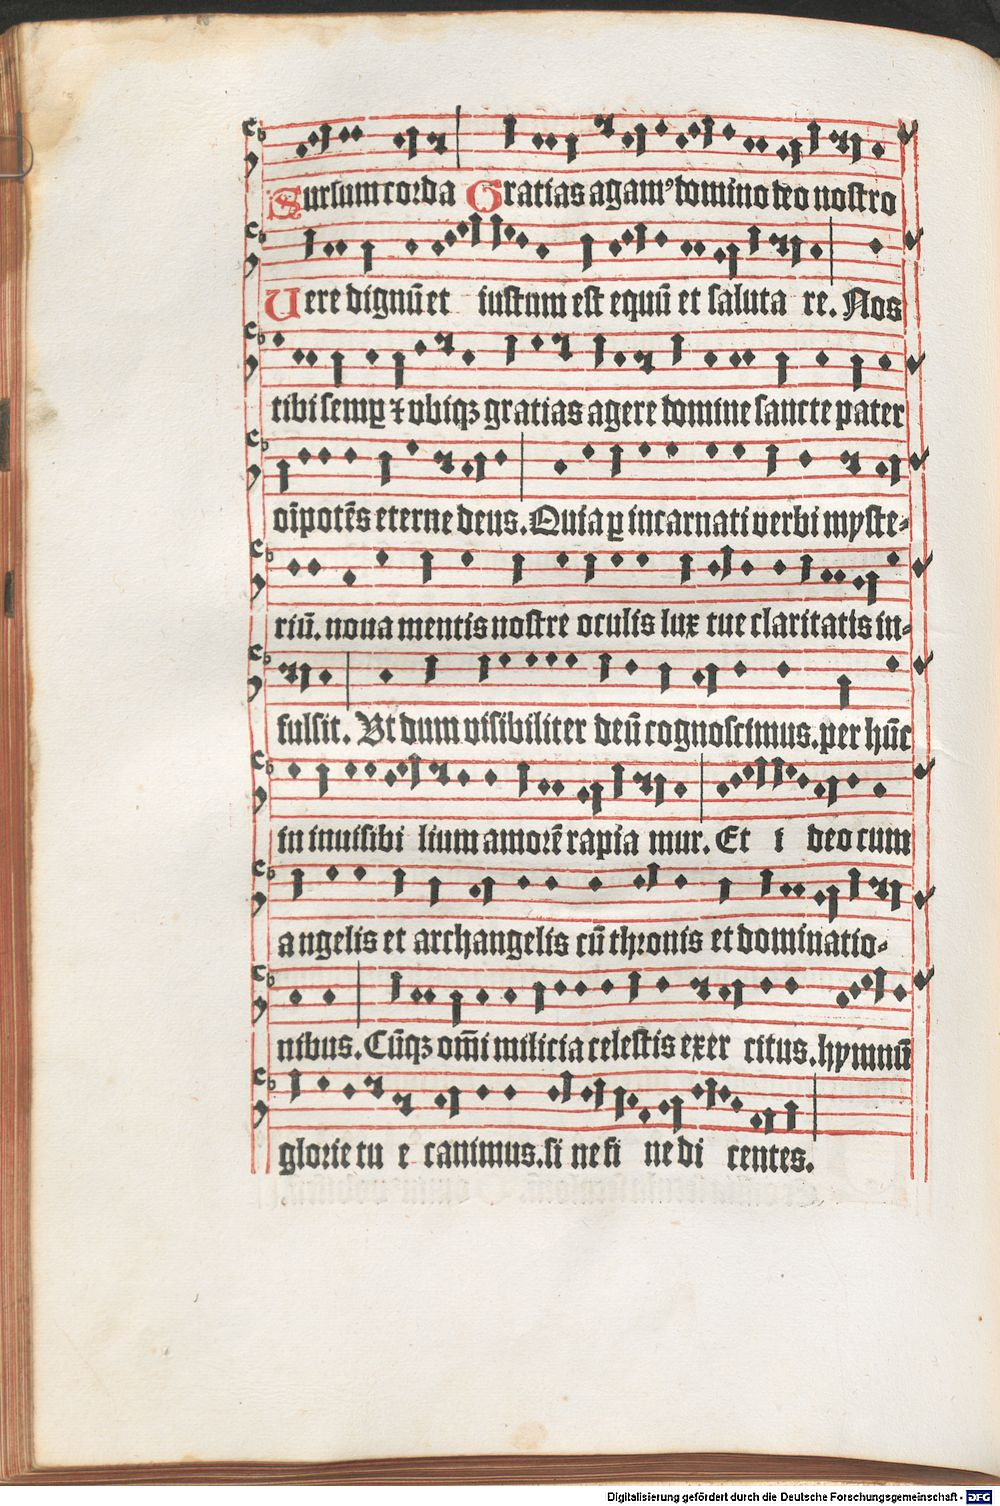 Sursum corda Gratias agamꝰ domino deo nostro
Uere dignū et iustum est equū et saluta re. Nos
tibi semꝑ ⁊ vbiqꝫ gratias agere domine sancte pater
oīpotēs eterne deus. Quia ꝑ incarnati verbi myste-
riū. noua mentis nostre oculis lux tue claritatis in-
fulsit. Ut dum visibiliter deū cognoscimus. per hūc
in inuisibi lium amorē rapia mur. Et i deo cum
angelis et archangelis cū thronis et dominatio-
nibus. Cūqꝫ om̄i milicia celestis exer citus. hymnū
glorie tu e canimus. si ne fi ne di centes.
Digitalisierung gefördert durch die Deutsche Forschungsgemeinschaft - DFG